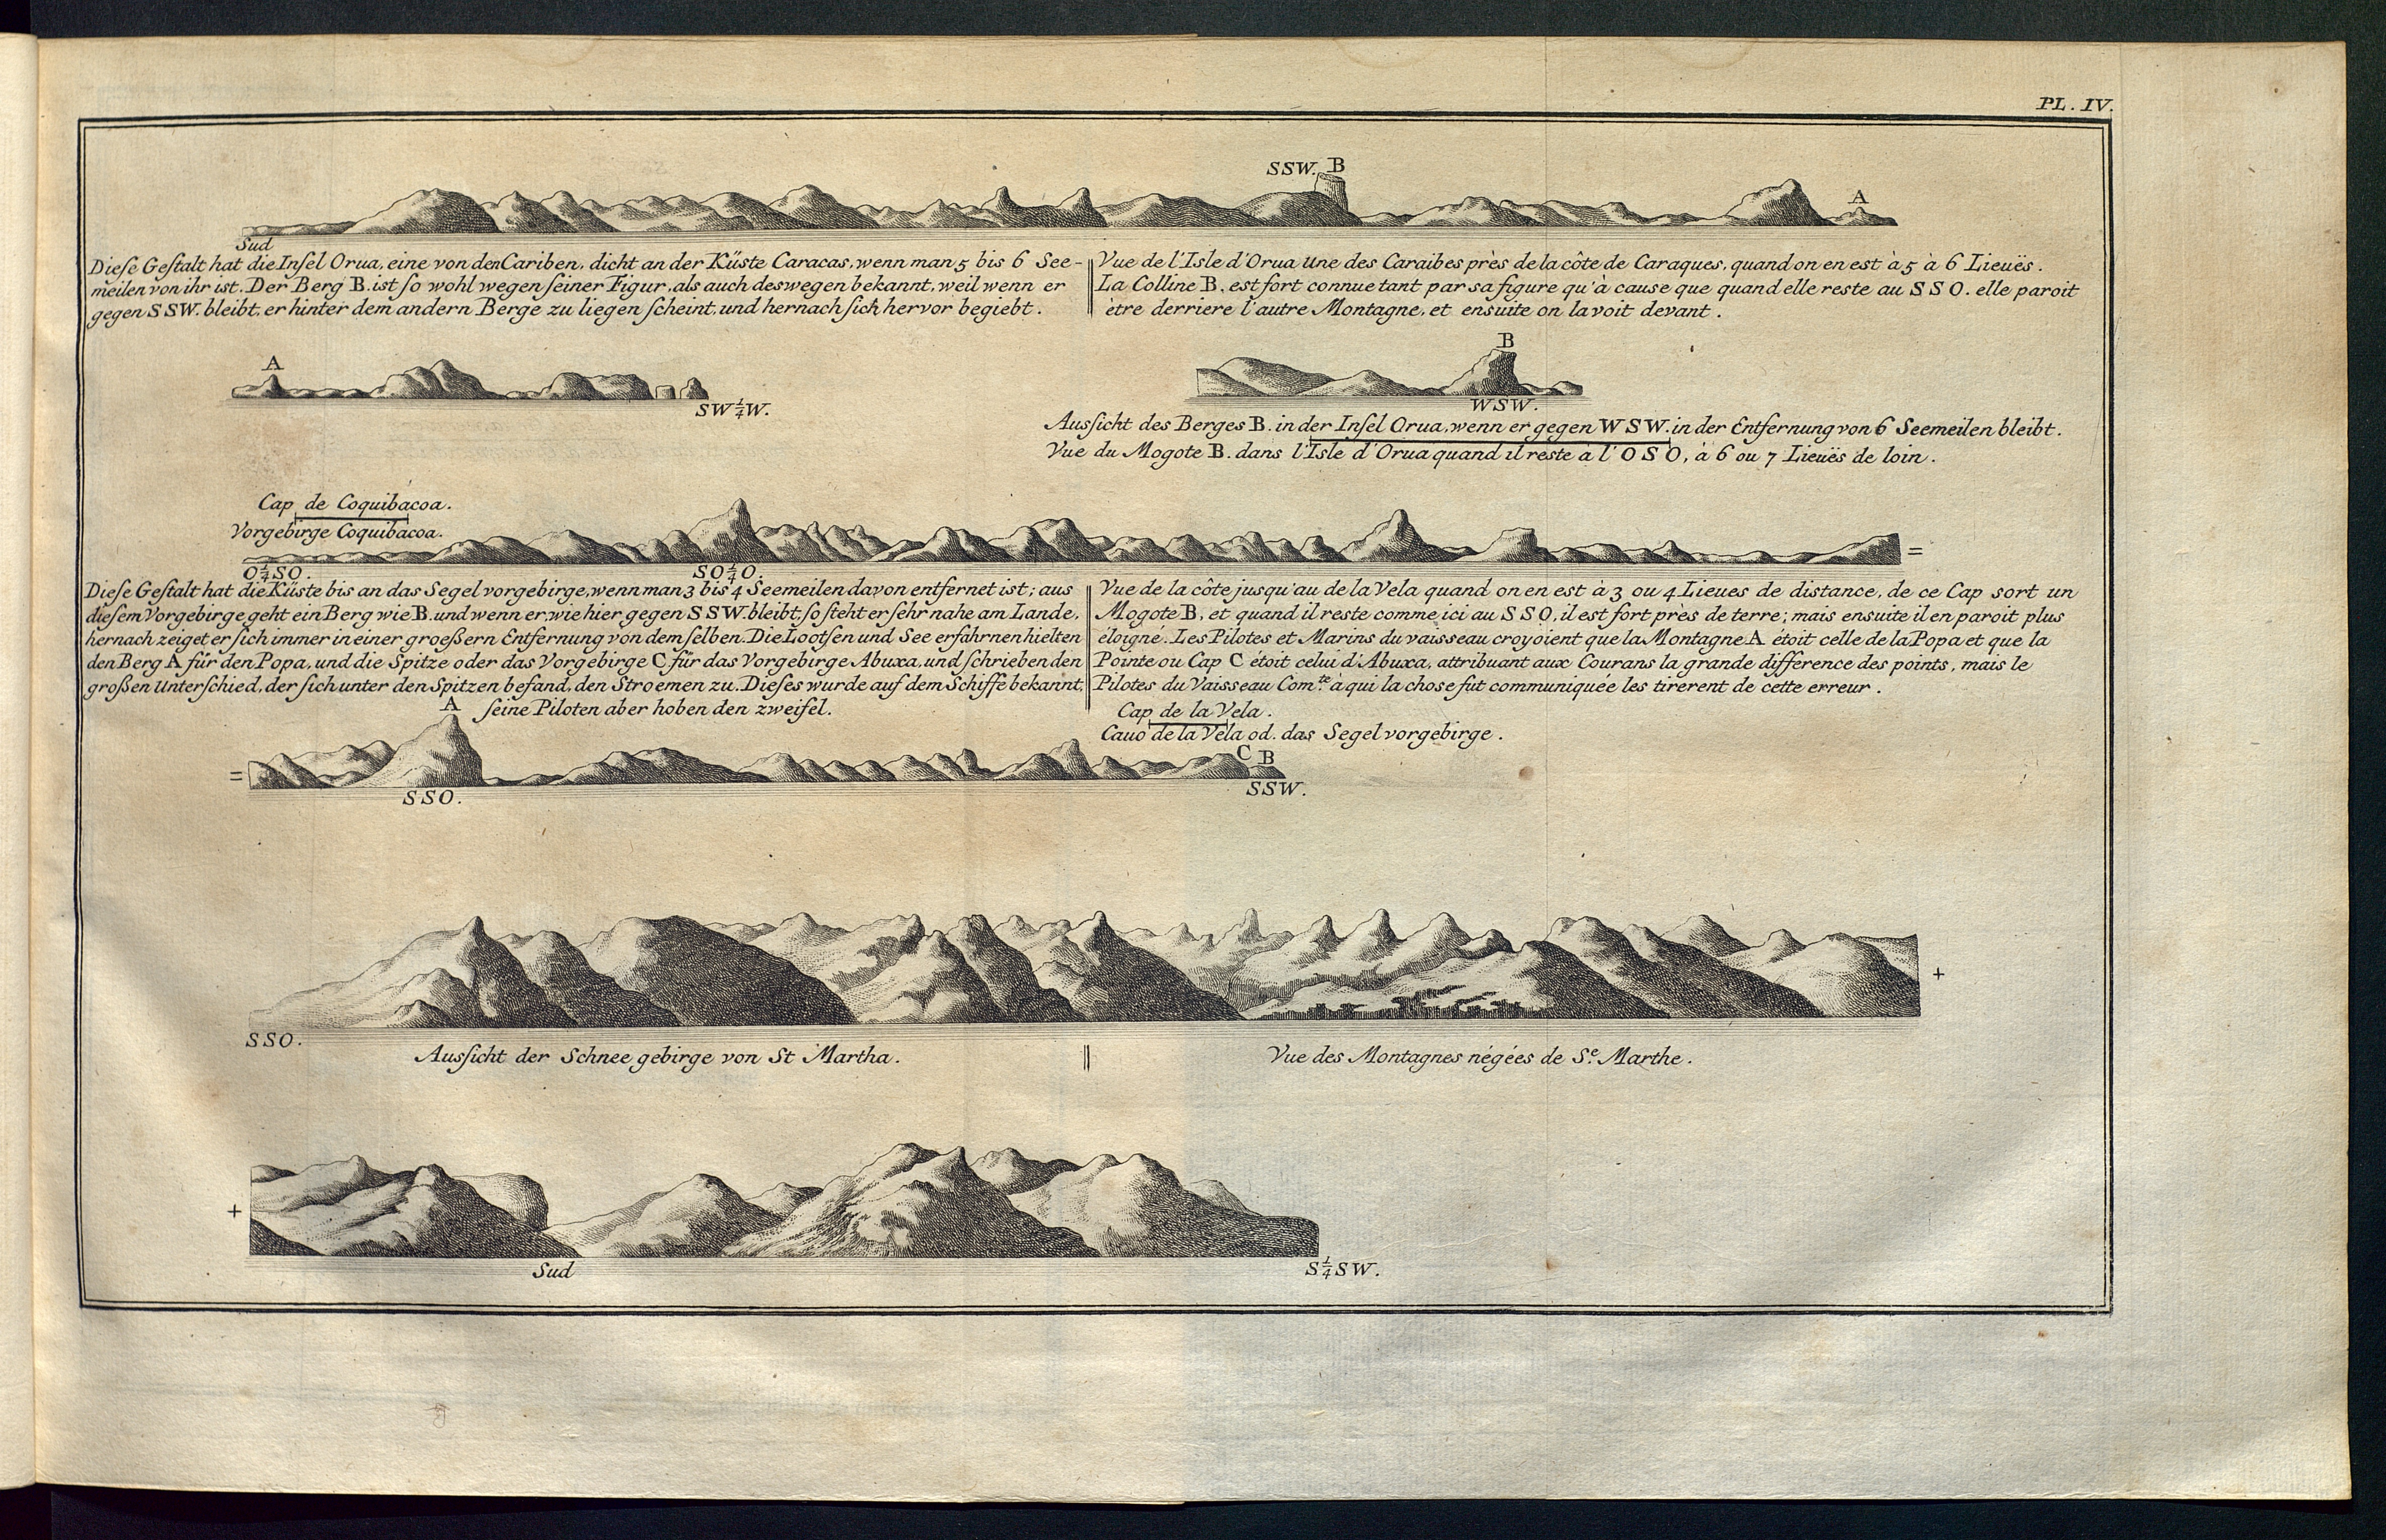 PL. IV.
SSW. B
A
Sud
Dieſe Geſtalt hat die Inſel Orua, eine von den Cariben, dicht an der Küste Caracas, wenn man 5 bis 6 See-
meilen von ihr ist. Der Berg B. ist ſo wohl wegen ſeiner Figur, als auch deswegen bekannt, weil wenn er
gegen SSW. bleibt, er hinter dem andern Berge zu liegen ſcheint, und hernach ſich hervor begiebt.
Vue de l'Isle d'Orua Une des Caraibes près de la côte de Caraques, quand on en est à 5 à 6 Lieuës.
La Colline B. est fort connue tant par sa figure qu'à cause que quand elle reste au SSO. elle paroit
ètre derriere l'autre Montagne, et ensuite on la voit devant.
A
SW¼W.
B
WSW.
Ausſicht des Berges B. in der Inſel Orua, wenn er gegen WSW. in der Entfernung von 6 Seemeilen bleibt.
Vue du Mogote B. dans l'Isle d'Orua quand il reste à l'OSO, à 6 ou 7 Lieuës de loin.
Cap de Coquibacoa.
Vorgebirge Coquibacoa.
=
O¼SO.
SO¼O.
Dieſe Geſtalt hat die Küste bis an das Segel vorgebirge, wenn man 3 bis 4 Seemeilen davon entfernet ist; aus
dieſem Vorgebirge geht ein Berg wie B. und wenn er, wie hier gegen SSW. bleibt, ſo ſteht er ſehr nahe am Lande,
hernach zeiget er ſich immer in einer groeßern Entfernung von demſelben. Die Lootſen und See erfahrnen hielten
den Berg A für den Popa, und die Spitze oder das Vorgebirge C. für das Vorgebirge Abuxa, und ſchrieben den
großen Unterſchied, der ſich unter den Spitzen befand, den Stroemen zu. Dieſes wurde auf dem Schiffe bekannt,
ſeine Piloten aber hoben den zweifel.
Vue de la côte jusqu'au de la Vela quand on en est à 3 ou 4 Lieues de distance, de ce Cap sort un
Mogote B, et quand il reste comme ici au SSO, il est fort près de terre; mais ensuite il en paroit plus
éloigné. Les Pilotes et Marins du vaisseau croyoient que la Montagne A étoit celle de la Popa et que la
Pointe ou Cap C étoit celui d'Abuxa, attribuant aux Courans la grande difference des points, mais le
Pilotes du Vaisseau Com.te à qui la chose fut communiquée les tirerent de cette erreur.
Cap de la Vela.
Cauo de la Vela od. das Segel vorgebirge.
A
C B
=
SSO.
SSW.
+
SSO.
Ausſicht der Schnee gebirge von St Martha.
Vue des Montagnes négées de S.e Marthe.
+
Sud
S¼SW.